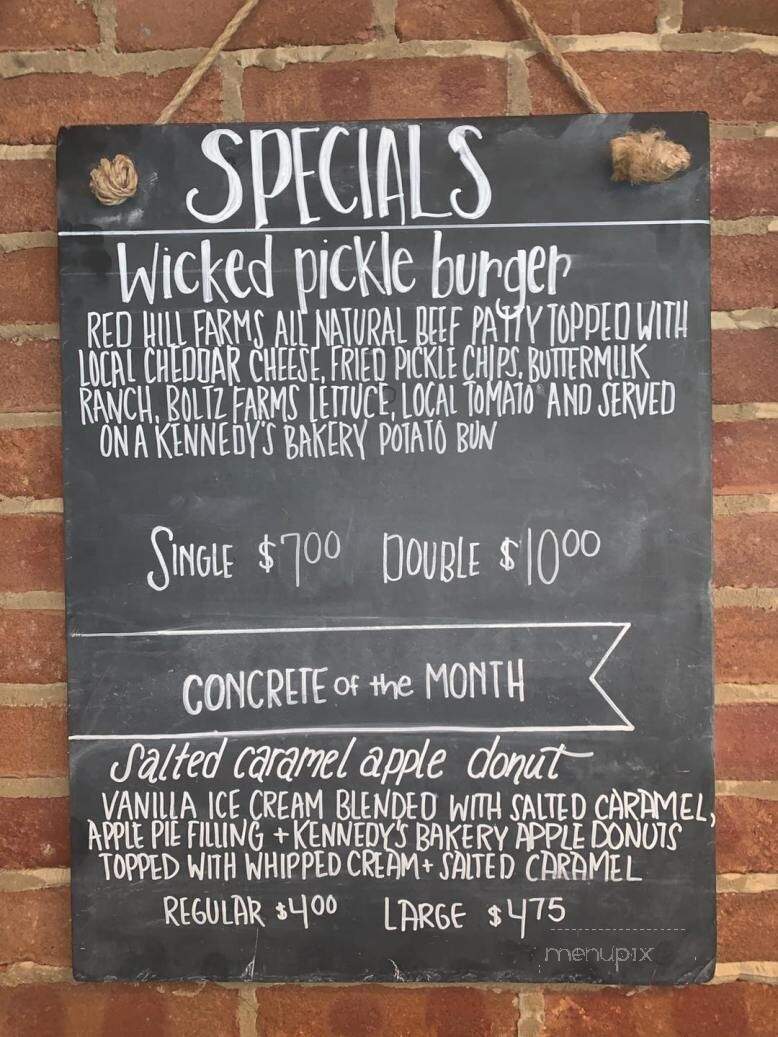 SPECIALS
Wicked pickle burger
RED HILL FARMS ALL NATURAL BEEF PATTY TOPPED WITH
LOCAL CHEDDAR CHEESE, FRIED PICKLE CHIPS, BUTTERMILK
RANCH, BOLTZ FARMS LETTUCE, LOCAL TOMATO AND SERVED
ON A KENNEDY'S BAKERY POTATO BUN
SINGLE $7.00 DOUBLE $10.00
CONCRETE of the MONTH
Salted caramel apple donut
VANILLA ICE CREAM BLENDED WITH SALTED CARAMEL,
APPLE PIE FILLING + KENNEDY'S BAKERY APPLE DONUTS
TOPPED WITH WHIPPED CREAM + SALTED CARAMEL
REGULAR $4.00 LARGE $4.75
menupix